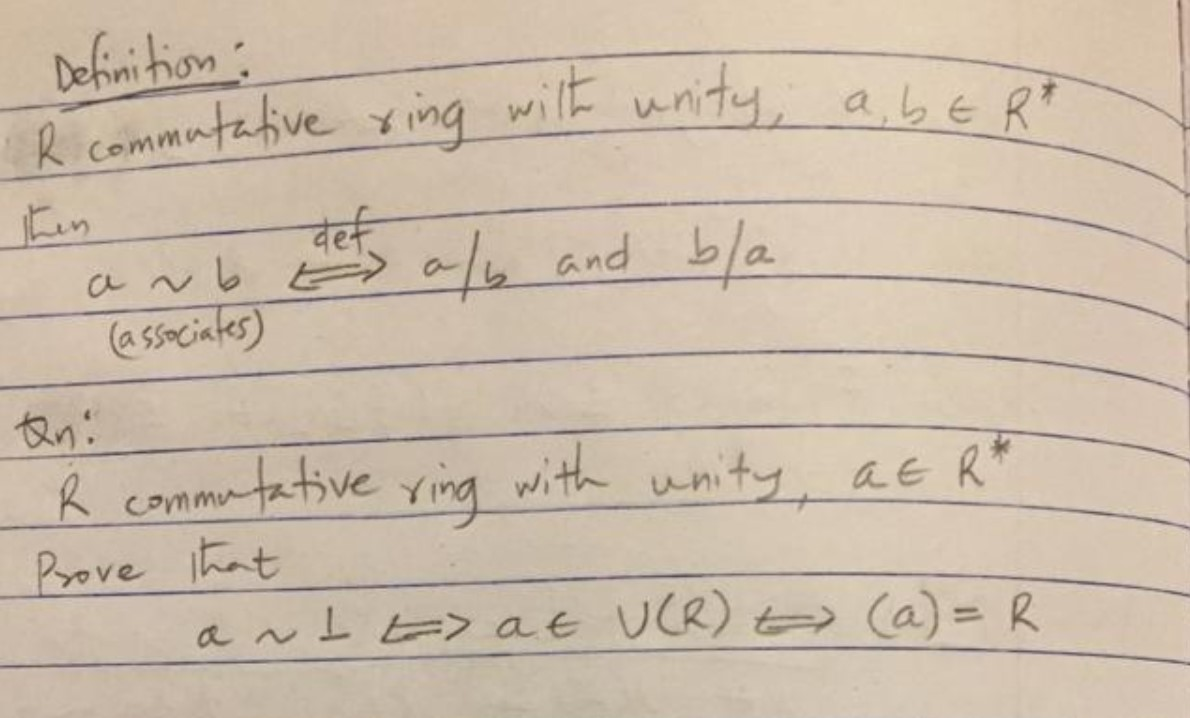 Definition:
R commutative ring with unity, a, b ∈ R*
then
a ~ b ⟺ def a/b and b/a
(associates)
Qn:
R commutative ring with unity, a ∈ R*
Prove that
a ~ 1 ⟺ a ∈ U(R) ⟺ (a) = R